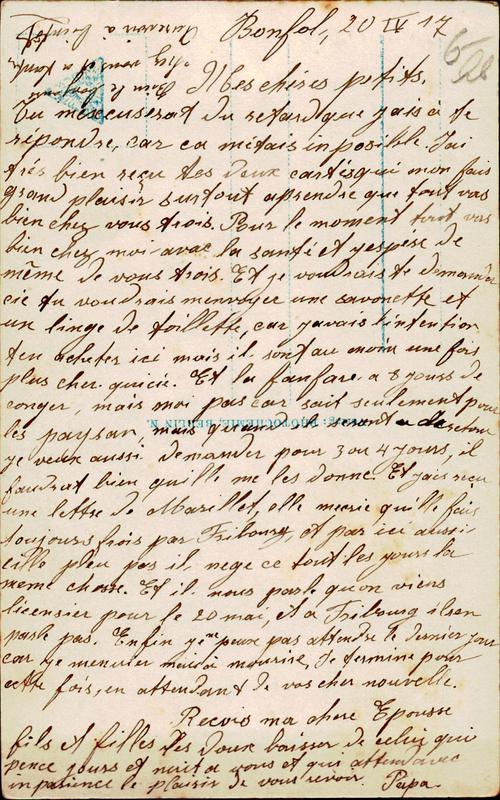 Bonfol, 20 IV 17
Mes chéres petits.
Tu mescuserat du retard que jais à te
répondre, car ca métais inposible. J'ai
trés bien reçu tes deux cartes qui mon fais
grand plaisir surtout aprendre que tout vas
bien chez vous trois. Pour le moment tout vas
bien chez moi avec la santé et jespére de
même de vous trois. Et je voudrais te demander
cie tu voudrais menvoyer une savonette et
un linge de toillette, car javais l'intention
ten acheter ici mais il sont au moin une fois
plus cher quicie. Et la fanfare a 8 jours de
conger, mais moi pas car sait seulement pour
les paysan, mais quand il seront de retour
je veux aussi demander pour 3 ou 4 jours, il
faudrat bien quille me les donne. Et jais reçu
une lettre de Marillet, elle mecrie quille fais
toujours frois par Fribourg, et par ici aussi
cille pleu pas il nege ce tout les jours la
meme chose. Et il nous parle quon viens
licensier pour le 20 mai, et a Fribourg ilsen
parle pas. Enfin je ne peux pas attendre le dernier jour
car je menuier mais a mourire, Je termine pour
cette fois, en attendant de vos cher nouvelle.
Recois ma chere Epouse
fils et filles des doux baisser de celui qui
pence jours et nuit a vous et qui attend avec
inpasience le plaisir de vous revoir. Papa
PHOTOCHEMIE, BERLIN N